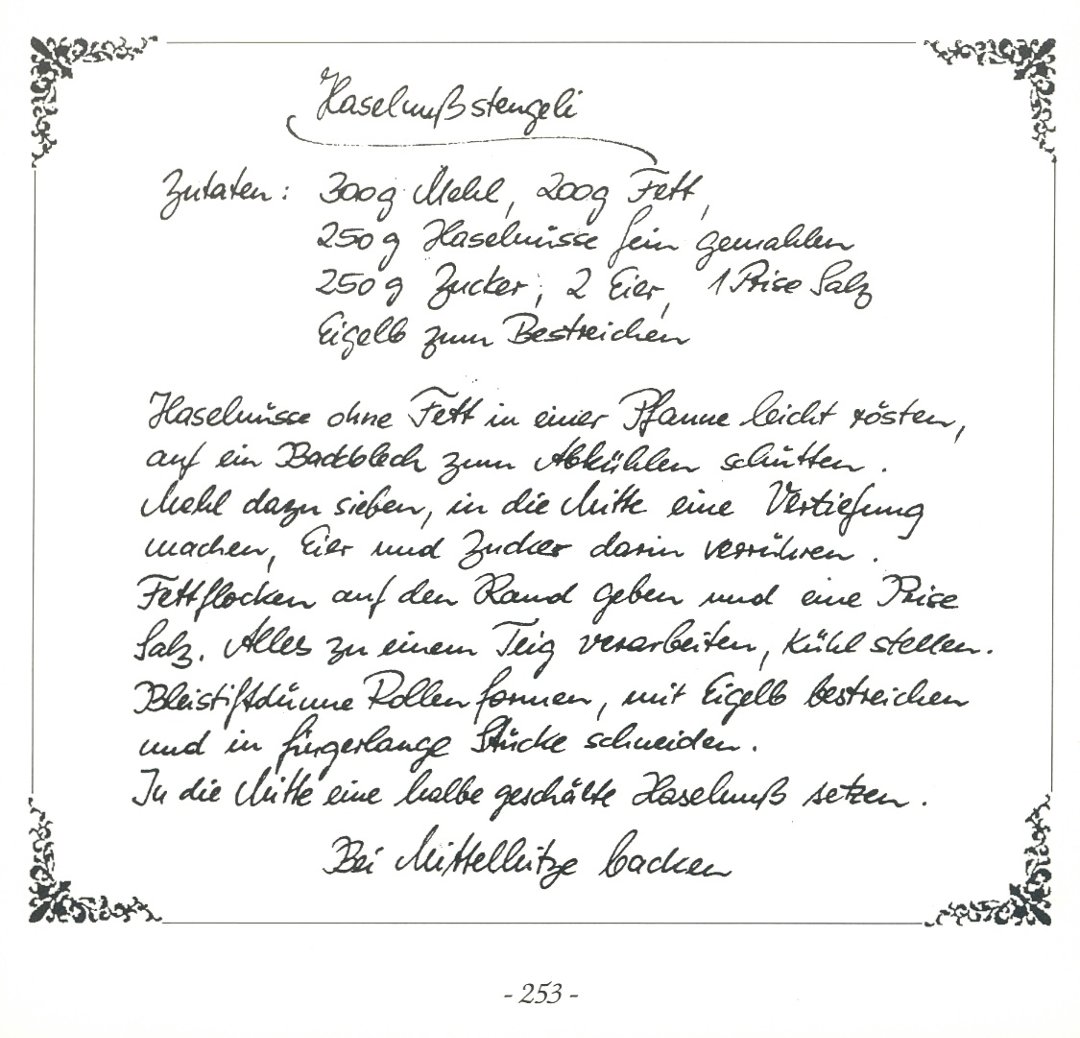 Haselnußstengeli
Zutaten: 300g Mehl, 200g Fett,
250g Haselnüsse fein gemahlen
250g Zucker, 2 Eier, 1 Prise Salz
Eigelb zum Bestreichen
Haselnüsse ohne Fett in einer Pfanne leicht rösten,
auf ein Backblech zum Abkühlen schütten.
Mehl dazu sieben, in die Mitte eine Vertiefung
machen, Eier und Zucker darin verrühren.
Fettflocken auf den Rand geben und eine Prise
Salz. Alles zu einem Teig verarbeiten, kühl stellen.
Bleistiftdünne Rollen formen, mit Eigelb bestreichen
und in fingerlange Stücke schneiden.
In die Mitte eine halbe geschälte Haselnuß setzen.
Bei Mittelhitze backen
- 253 -